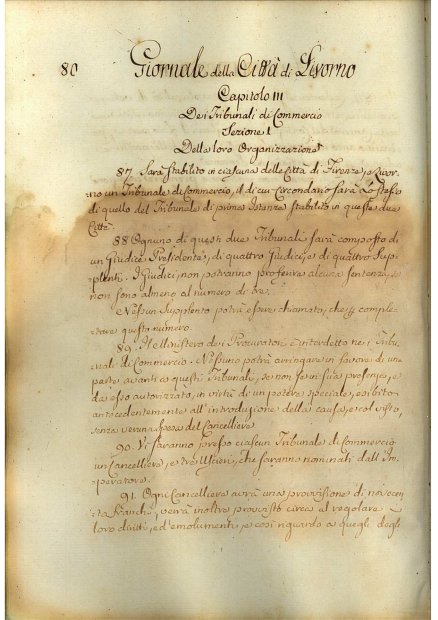 80 Giornale della Città di Livorno
Capitolo III
Dei Tribunali di Commercio
Sezione I
Della loro Organizzazione
87. Sarà stabilito in ciascuna delle Città di Firenze, e Livor-
no un Tribunale di Commercio, il di cui Circondario sarà lo stesso
di quello del Tribunale di prima Istanza stabilito in queste due
Città.
88. Ognuno di questi due Tribunali sarà composto di
un Giudice Presidente, di quattro Giudici, e di quattro Sup-
plenti. I Giudici, non potranno proferire alcuna sentenza, se
non sono almeno al numero di tre.
Nessun Supplente potrà essere chiamato, che per comple-
tare questo numero.
89. Il Ministero dei Procuratori è interdetto nei Tribu-
nali di Commercio. Nessuno potrà arringare in favore di una
parte avanti a questi Tribunali, se non sarà in sua presenza, e
da essa autorizzato, in virtù di un potere speciale, esibito
antecedentemente all'introduzione della causa, e col visto,
senza veruna spesa del Cancelliere.
90. Vi saranno presso ciascun Tribunale di Commercio
un Cancelliere, e tre Uscieri, che saranno nominati dall'Im-
peratore.
91. Ogni Cancelliere avrà una provvisione di novecen-
ta franchi, verrà inoltre provvisto circa al regolare
loro diritti, ed emolumenti, e così riguardo a quegli degli